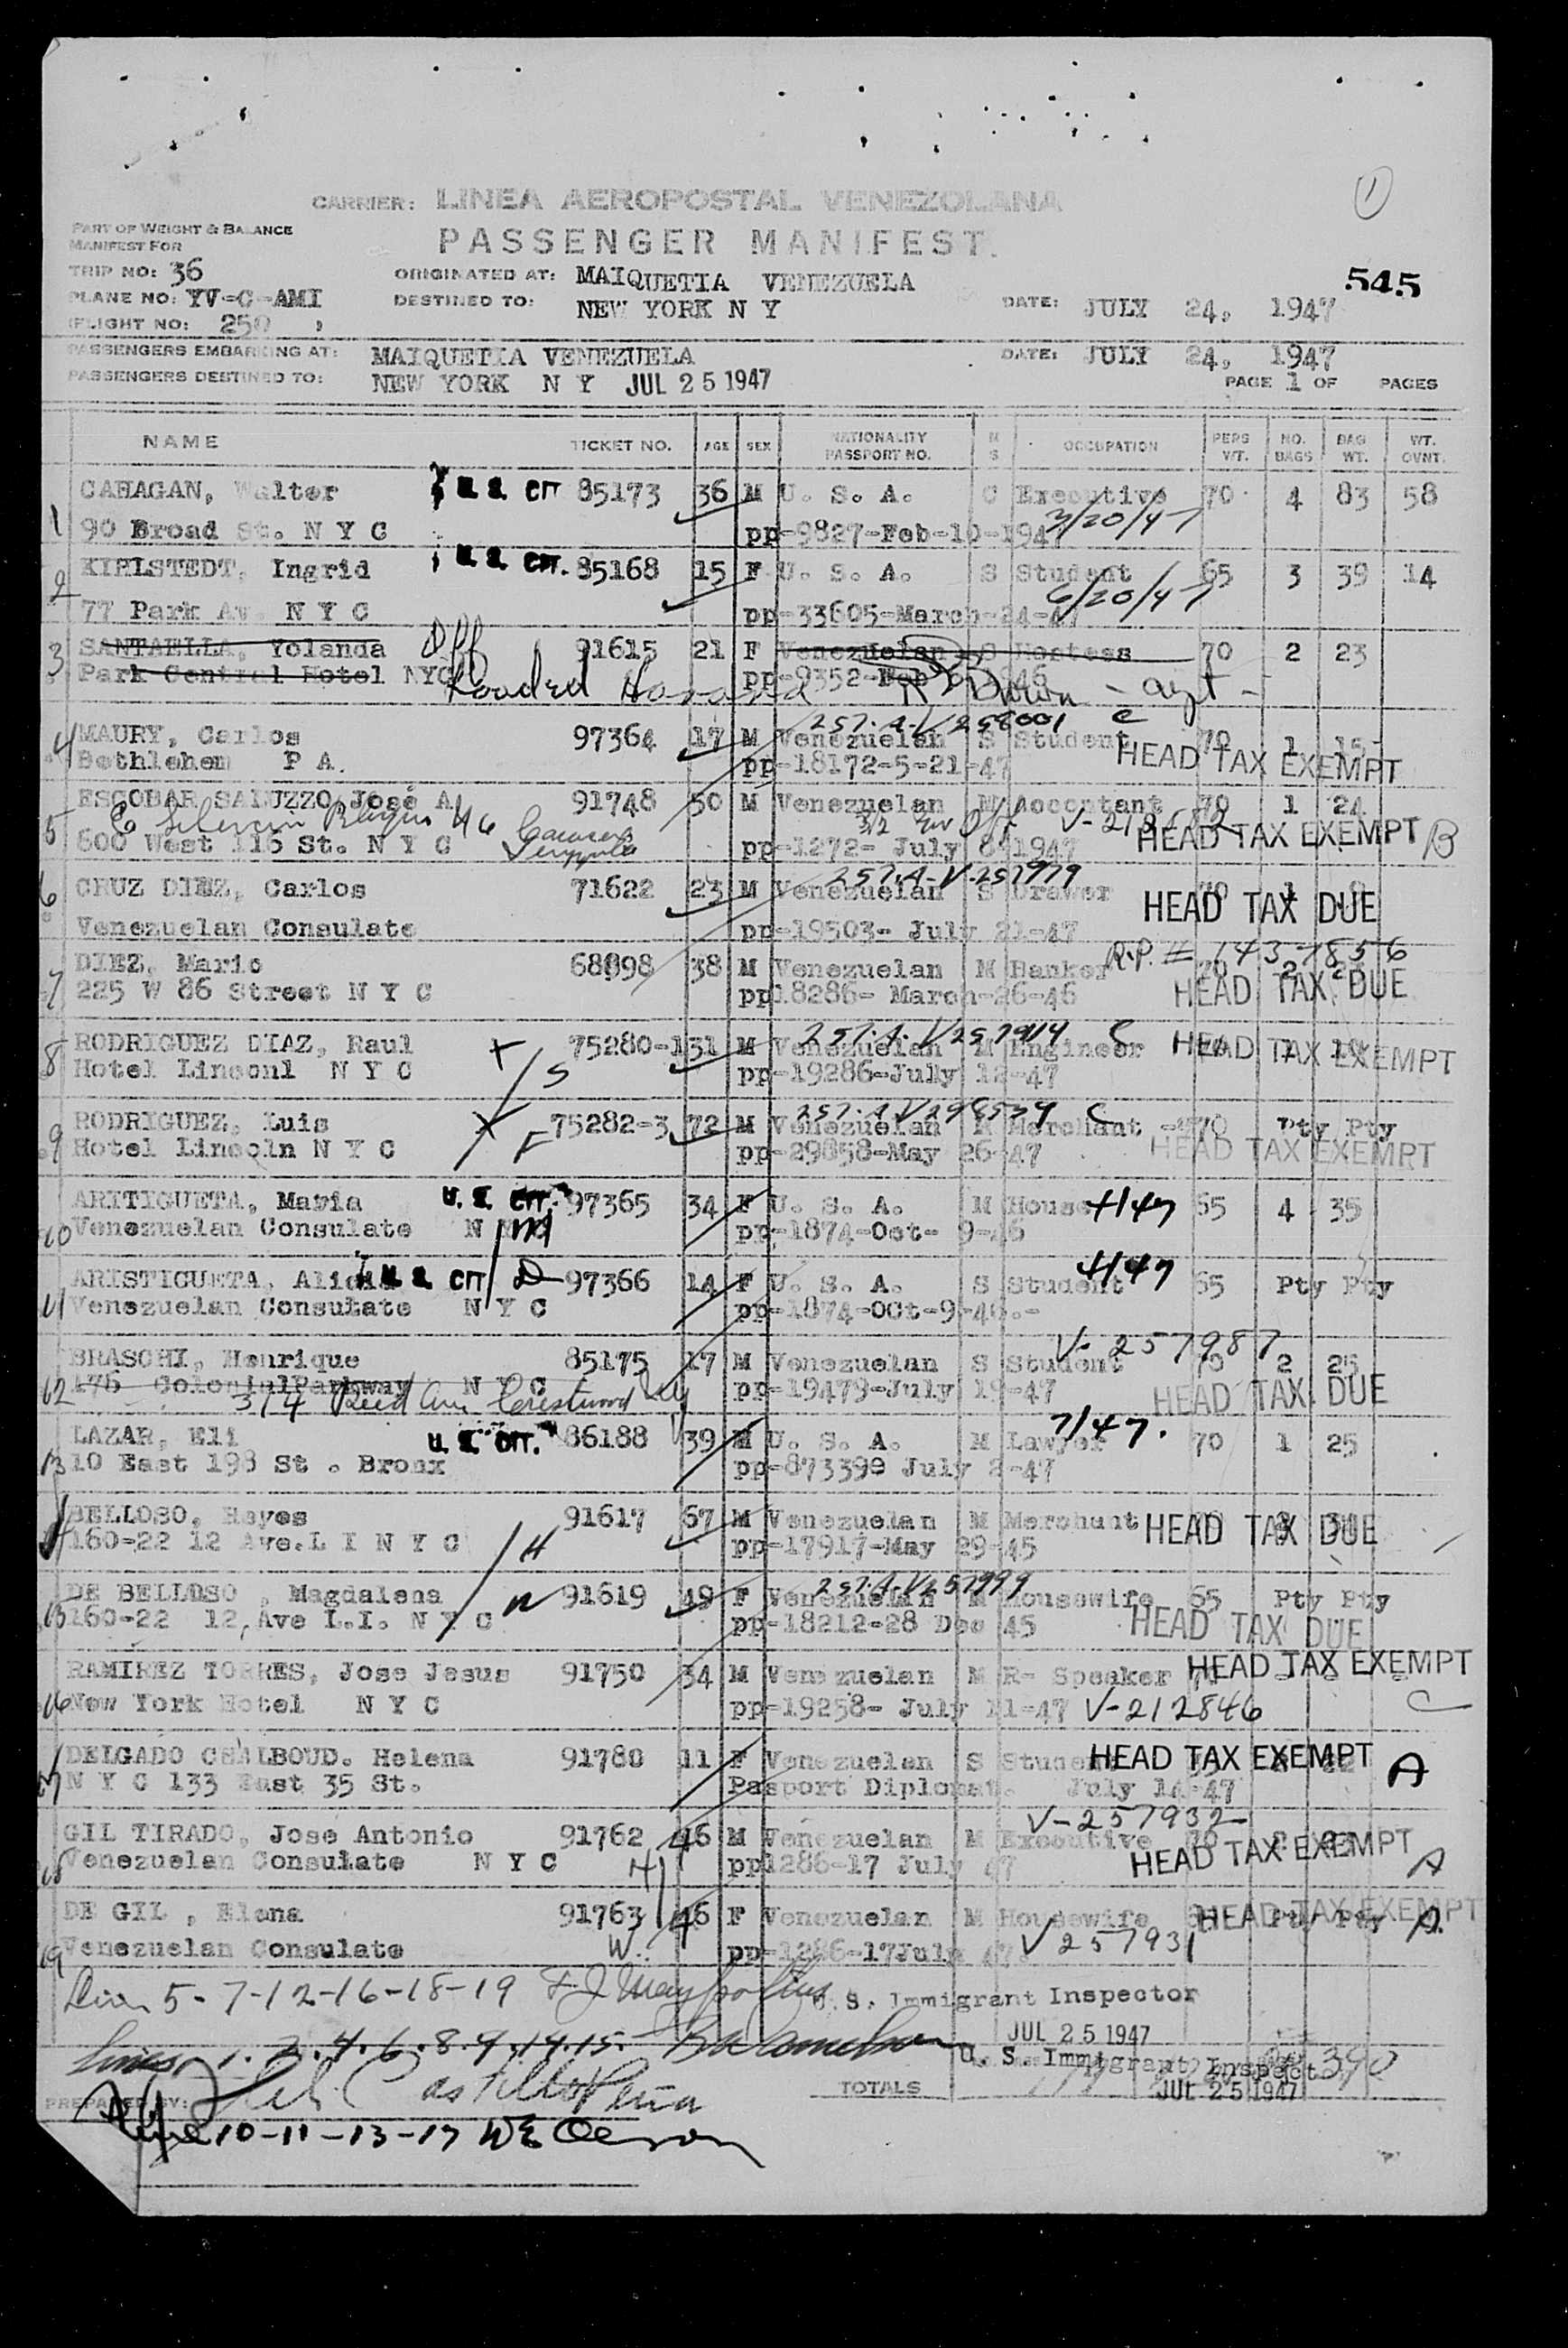 1
CARRIER: LINEA AEROPOSTAL VENEZOLANA
PART OF WEIGHT & BALANCE
MANIFEST FOR
PASSENGER MANIFEST.
TRIP NO: 36
ORIGINATED AT: MAIQUETIA VENEZUELA
545
PLANE NO: YV-C-AMI
DESTINED TO: NEW YORK N Y
DATE: JULY 24, 1947
FLIGHT NO: 250
PASSENGERS EMBARKING AT: MAIQUETIA VENEZUELA
DATE: JULY 24, 1947
PASSENGERS DESTINED TO: NEW YORK N Y JUL 25 1947
PAGE 1 OF PAGES
NAME TICKET NO. AGE SEX NATIONALITY PASSPORT NO. M S OCCUPATION PERS WT. NO. BAGS BAG WT. WT. OVNT.
CAHAGAN, Walter U. S. CIT 85173 36 M U. S. A. C Executive 70 4 83 58
1 90 Broad St. N Y C pp-9827-Feb-10-1947 3/20/47
KIRLSTEDT, Ingrid U. S. CIT. 85168 15 F U. S. A. S Student 65 3 39 14
2 77 Park Av. N Y C pp-33605-March-24-47 6/20/47
3 SANTAELLA, Yolanda Off 91615 21 F Venezuelan S Hostess 70 2 23
Park Central Hotel NYC pp-9352-Feb 1946
4 MAURY, Carlos 97364 17 M Venezuelan S Student 70 1 15
257-A-V258001 C
Bethlehem P A. pp-18172-5-21-47 HEAD TAX EXEMPT
ESCOBAR SALUZZO, José A 91748 50 M Venezuelan M Accontant 70 1 24
5 600 West 116 St. N Y C pp-1272- July 8-1947 HEAD TAX EXEMPT B
6 CRUZ DIEZ, Carlos 71622 23 M Venezuelan S Drawer
257-A-V-257979
HEAD TAX DUE
Venezuelan Consulate pp-19503- July 21-47
R.P. # 143-1856
DIEZ, Mario 68898 38 M Venezuelan M Banker 70 2
7 225 W 86 Street N Y C pp18286- March-26-46 HEAD TAX DUE
RODRIGUEZ DIAZ, Raul 75280-1 31 M Venezuelan M Engineer
HEAD TAX EXEMPT
8 Hotel Linconl N Y C S pp-19286-July 12-47
RODRIGUEZ, Luis 75282-3 72 M Venezuelan M Merchant 70 Pty Pty
9 Hotel Lincoln N Y C F pp-29858-May 26-47 HEAD TAX EXEMPT
ARITIGUETA, Maria U. S. CIT. 97365 34 F U. S. A. M House 4/47 65 4 35
10 Venezuelan Consulate N Y C M pp-1874-Oct- 9-46
ARISTIGUETA, Alicia U. S. CIT D 97366 14 F U. S. A. S Student 4/47 65 Pty Pty
11 Venezuelan Consulate N Y C pp-1874-OCt-9-46.-
V-257987
BRASCHI, Henrique 85175 17 M Venezuelan S Student 70 2 25
12 176 ColonialParkway N Y C pp-19479-July 19-47 HEAD TAX DUE
314 Reed Ave Crestwood NY
LAZAR, Eli U. S. CIT. 86188 39 M U. S. A. M Lawyer 7/47. 70 1 25
13 10 East 198 St . Bronx pp-873399 July 2-47
BELLOSO, Reyes 91617 67 M Venezuelan M Merchant HEAD TAX DUE
14 160-22 12 Ave.L I N Y C H pp-17917-May 29-45
DE BELLOSO , Magdalena W 91619 49 F Venezuelan M Housewife 65 Pty Pty
257-A-V257999
15 160-22 12,Ave L.I. N Y C pp-18212-28 Dec 45 HEAD TAX DUE
RAMIREZ TORRES, Jose Jesus 91750 34 M Venezuelan M R- Speaker HEAD TAX EXEMPT
16 New York Hotel N Y C pp-19258- July 11-47 V-212846 C
DELGADO CHALBOUD. Helena 91780 11 F Venezuelan S Student HEAD TAX EXEMPT A
17 N Y C 133 East 35 St. Pasport Diplomat. July 14-47
V-257932
GIL TIRADO, Jose Antonio 91762 46 M Venezuelan M Executive 70
18 Venezuelan Consulate N Y C H pp1286-17 July 47 HEAD TAX EXEMPT A
DE GIL , Elena 91763 46 F Venezuelan M Housewife HEAD TAX EXEMPT Pty Pty A.
19 Venezuelan Consulate W. pp-1286-17July 47 V 257931
5-7-12-16-18-19
U. S. Immigrant Inspector
JUL 25 1947
Lines 1. 2. 4. 6. 8. 9. 14. 15.
U. S. Immigrant Inspect 390
JUL 25 1947
TOTALS
PREPARED BY: Castillo Peña
10-11-13-17 WE Oerson